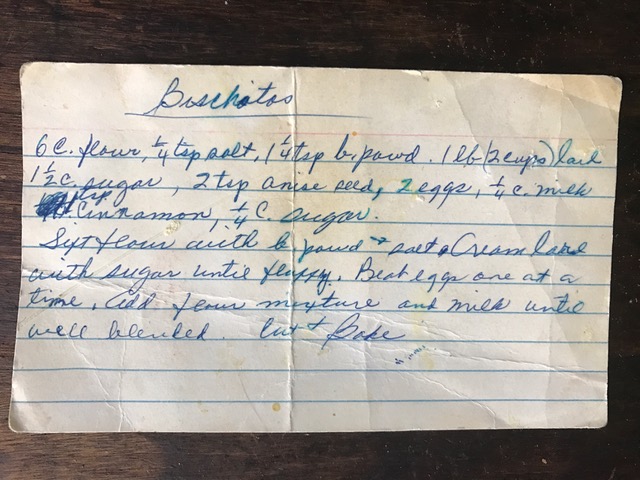 Bischotos
6 C. flour, 1/4 tsp salt, 1 1/4 tsp b. powd. 1 lb (2 cups) lard
1 1/2 c. sugar, 2 tsp anise seed, 2 eggs, 1/4 c. milk
Cinnamon, 1/4 C. sugar.
Sift flour with b powd + salt Cream lard
with sugar until fluffy. Beat eggs one at a
time. Add flour mixture and milk until
well blended. Cut + Bake